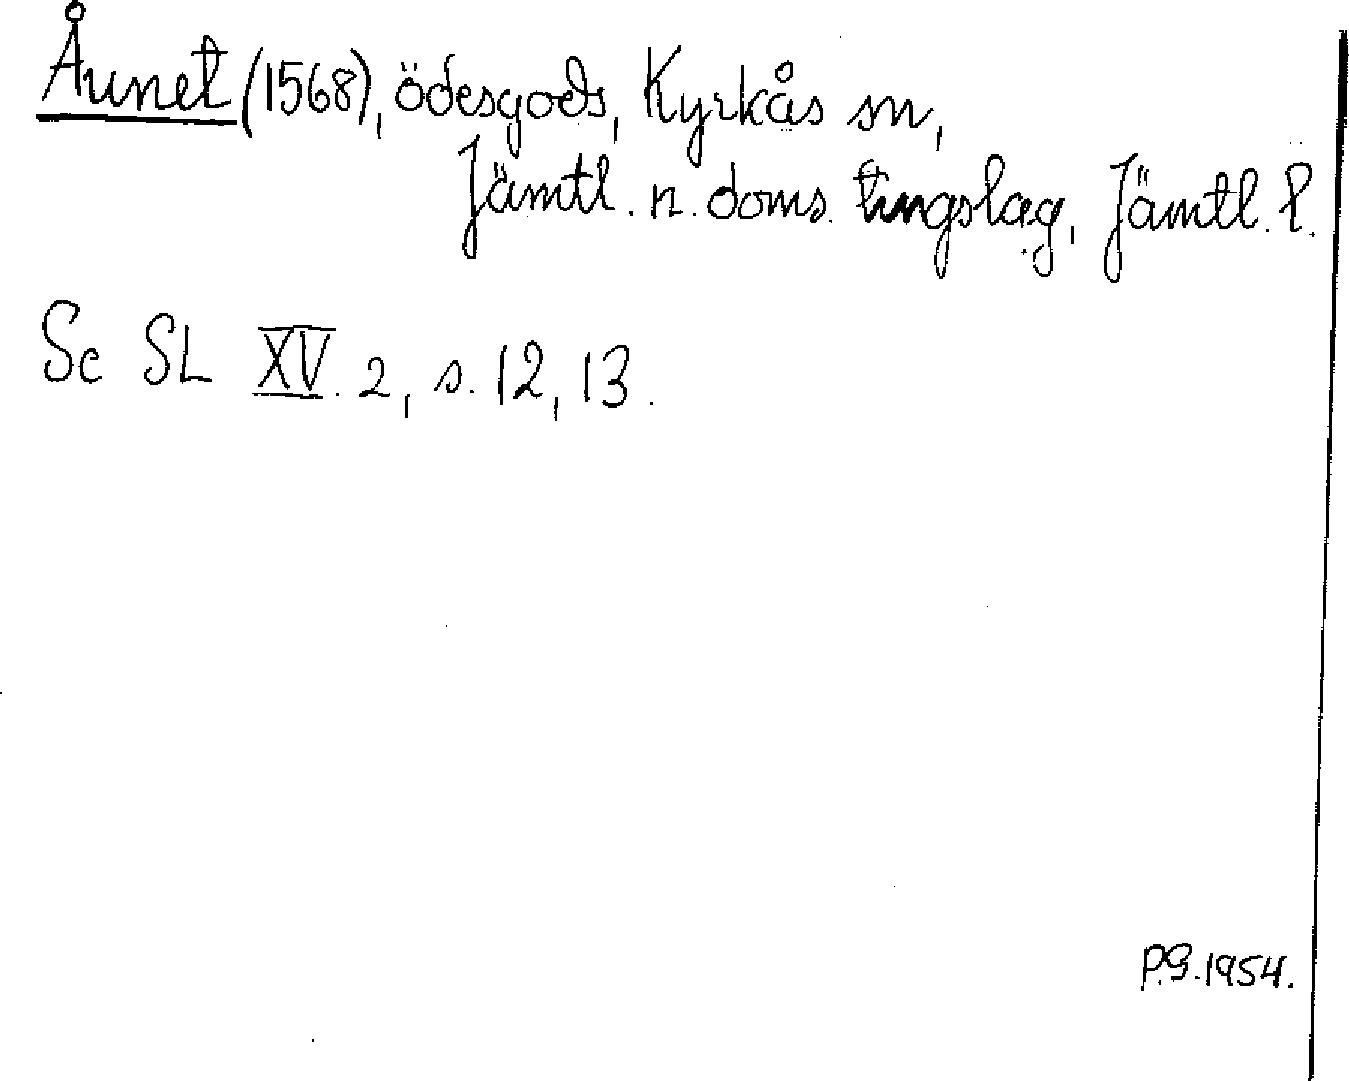 Åunet (1568), ödesgods, Kyrkås sn,
Jämtl. n. doms. tingslag, Jämtl. l.
Se SL XV. 2, s. 12, 13.
P.G. 1954.